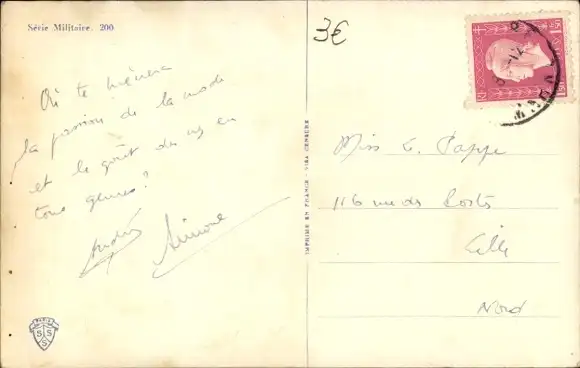 Série Militaire. 200
3€
1F50
Où te mènera
la passion de la mode
et le goût du
tous genres?
André Simone
IMPRIMÉ EN FRANCE - VISA CENSURE
Miss E. Pappe
116 rue des Postes
Lille
Nord
PARIS